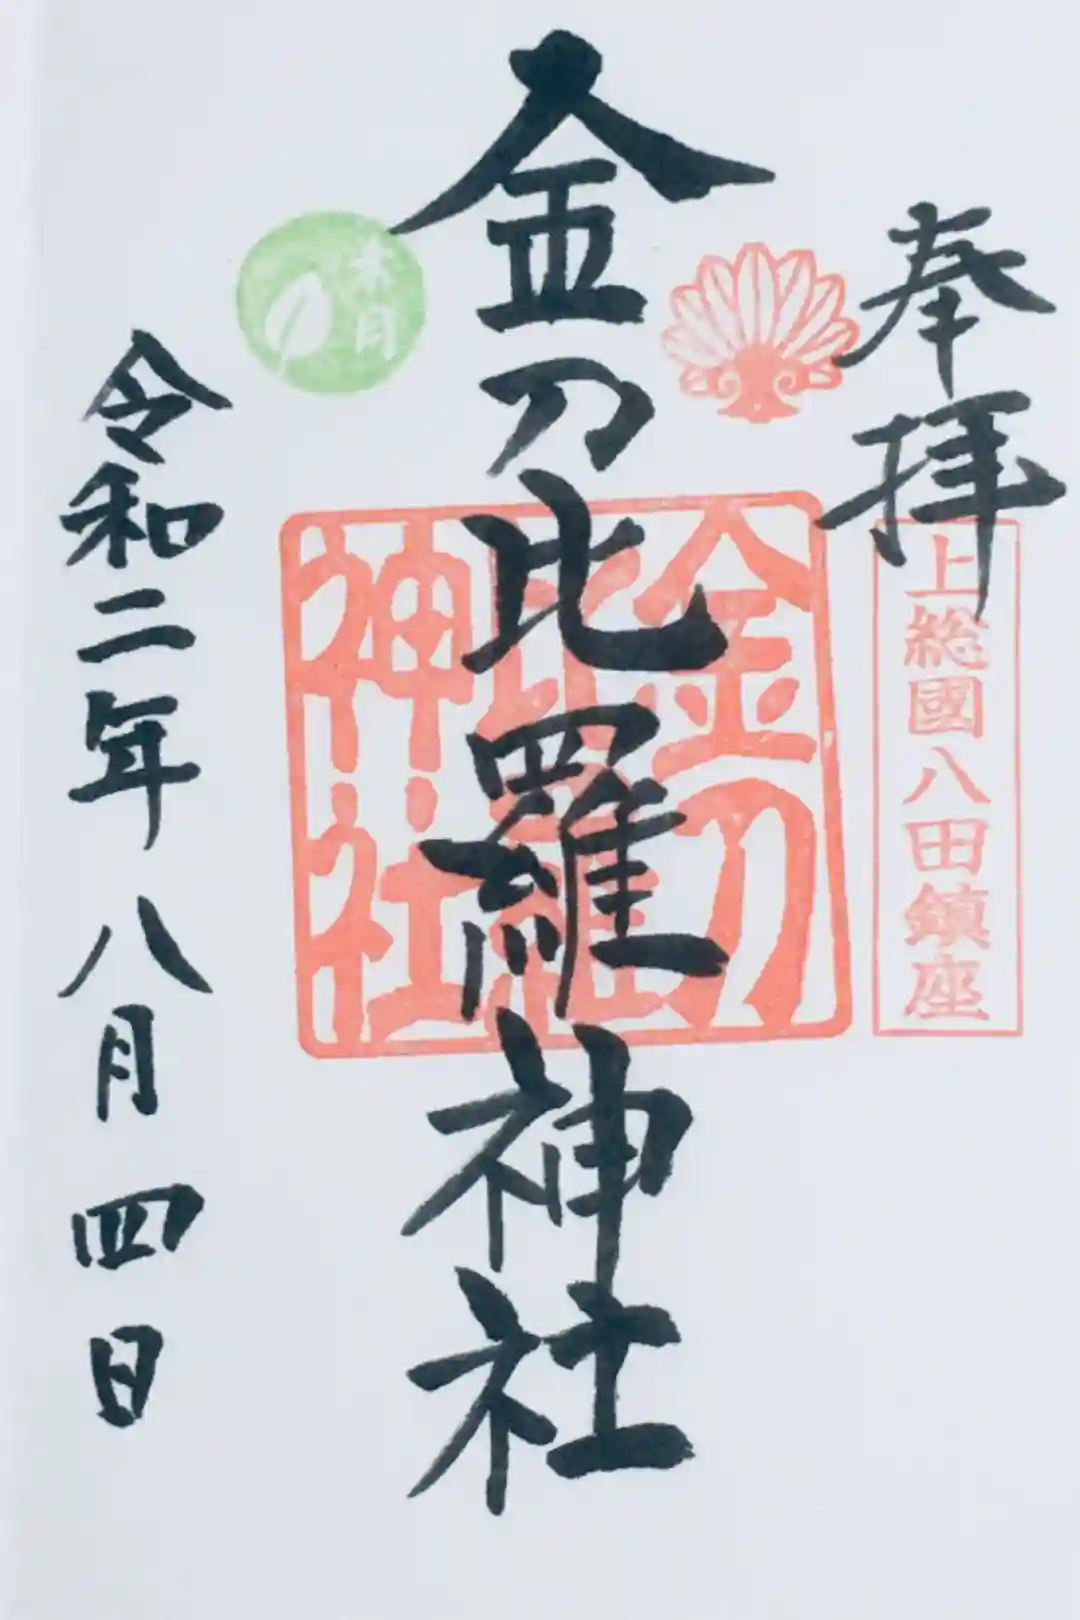 奉拝
上総國八田鎮座
金刀比羅神社
金刀比羅神社
葉月
令和二年八月四日